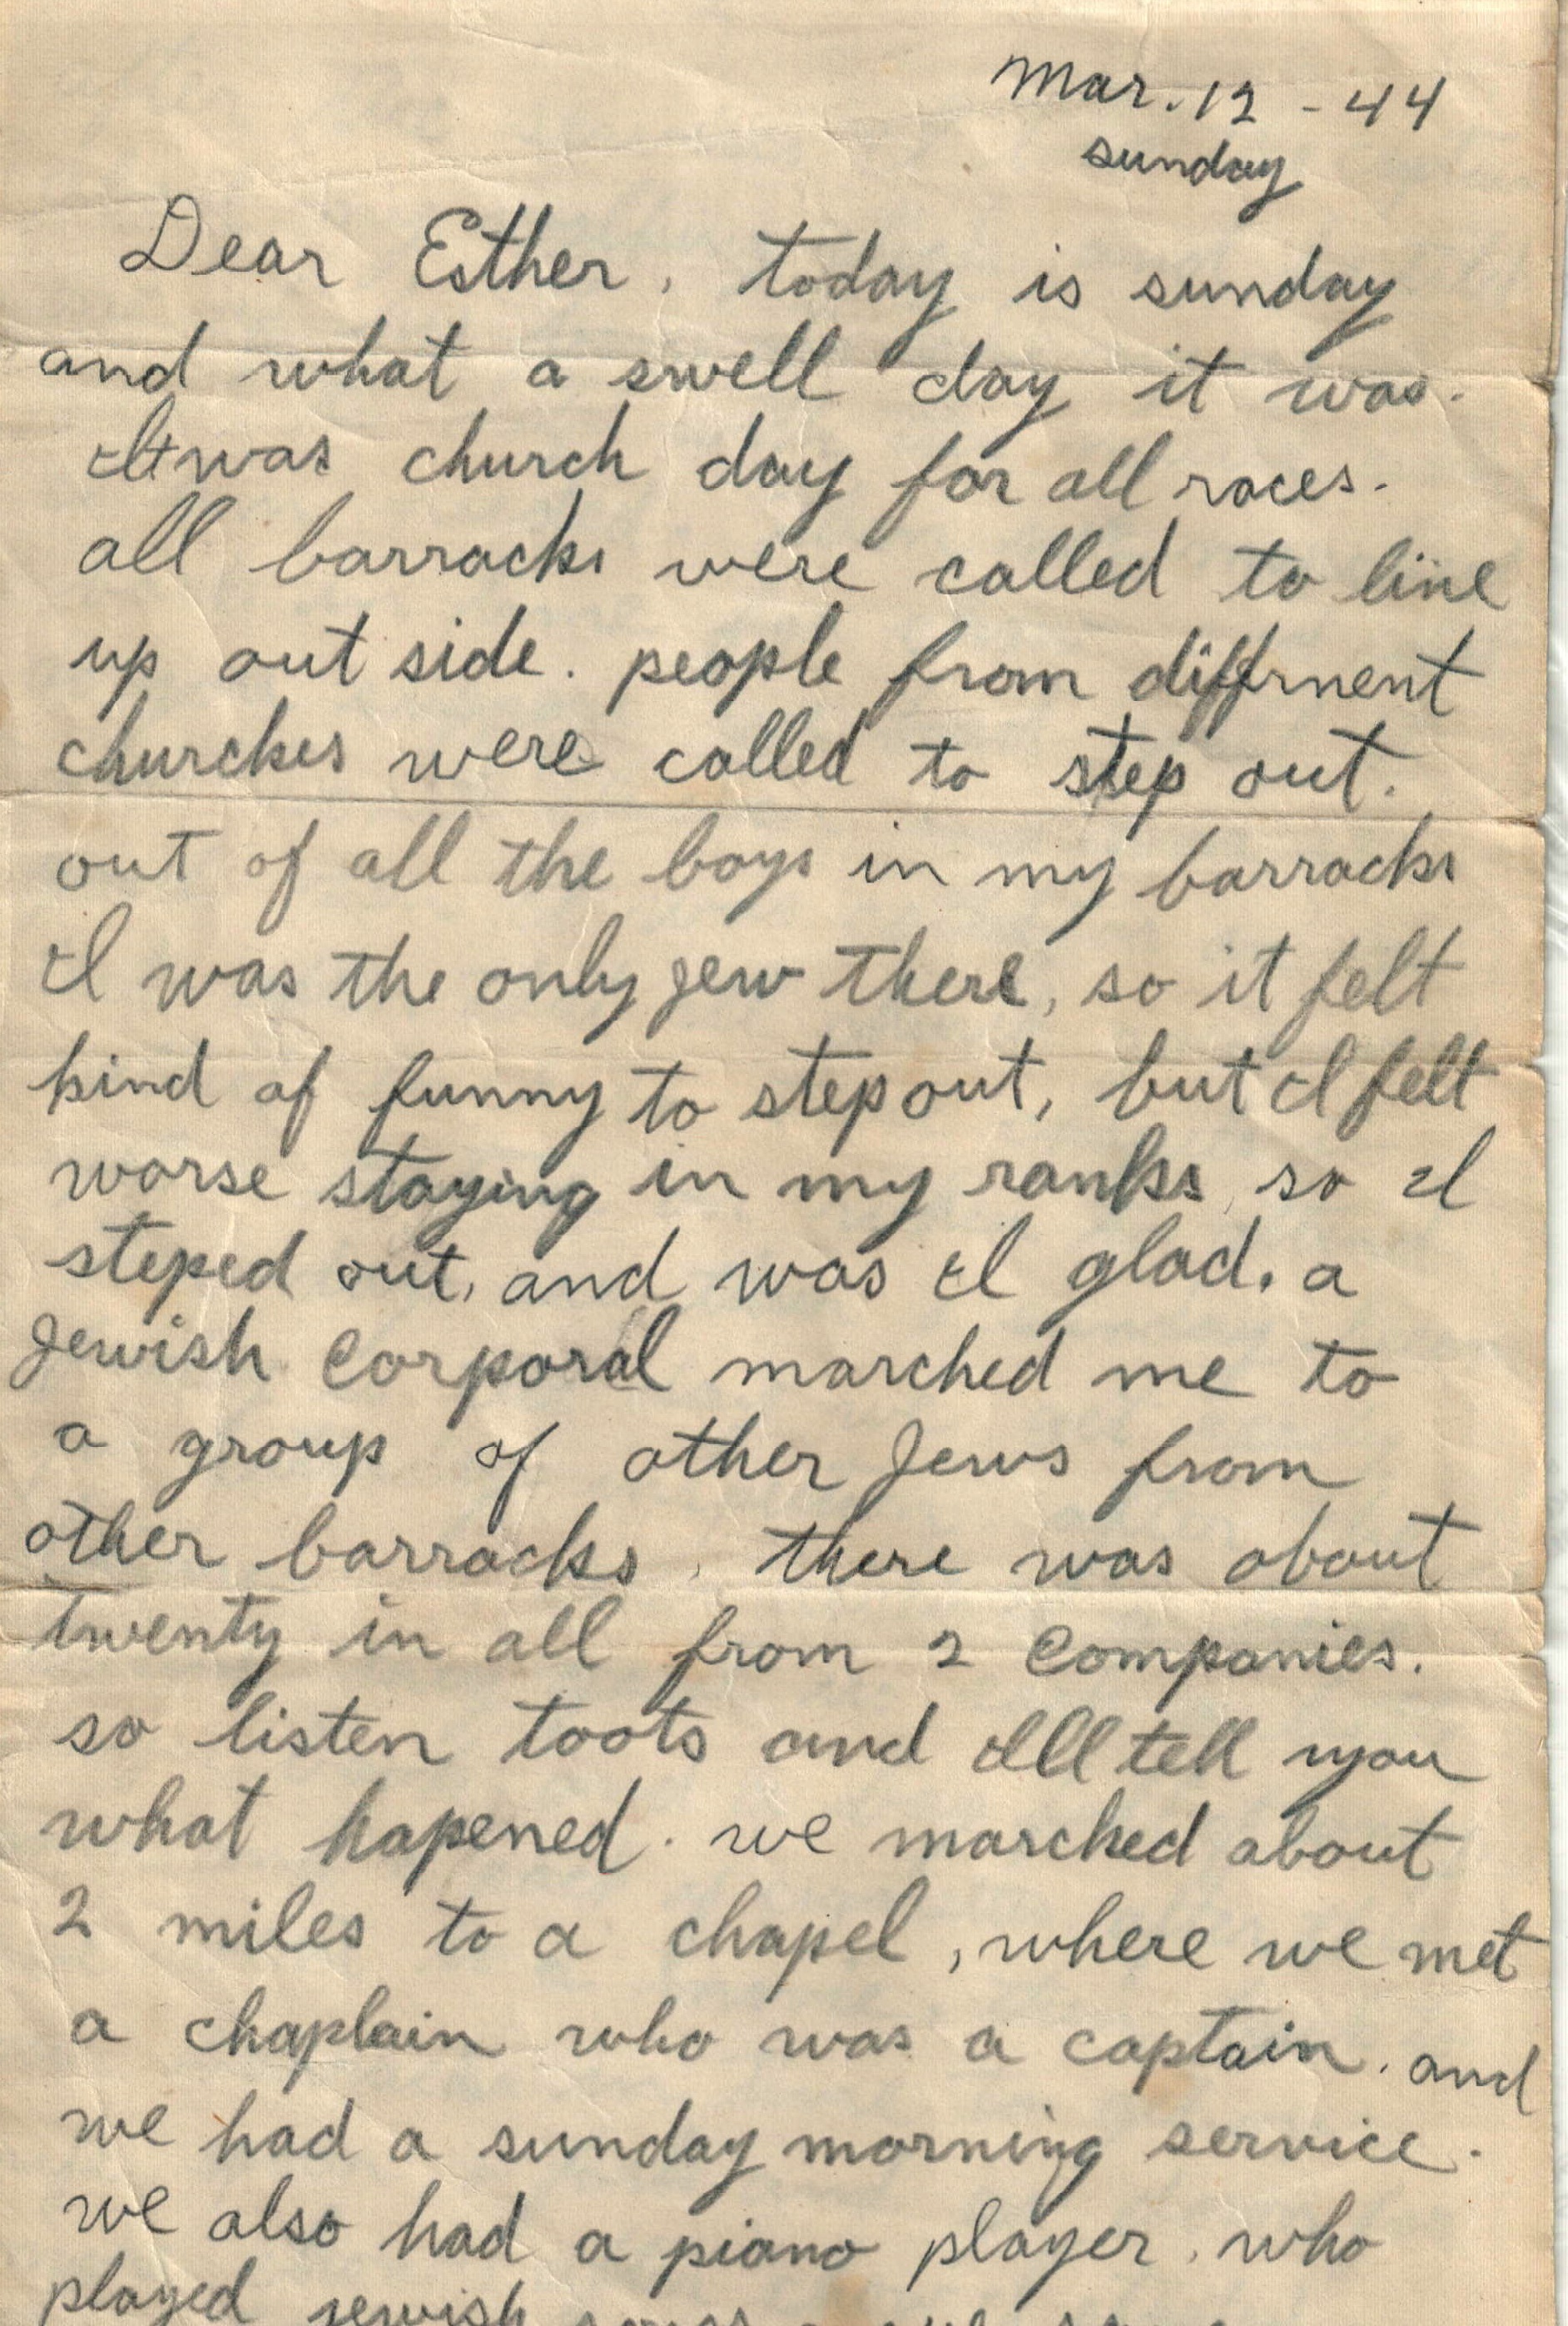 Mar. 12 - 44
sunday
Dear Esther, today is sunday
and what a swell day it was.
It was church day for all races.
all barracks were called to line
up out side. people from diffrnent
churches were called to step out.
out of all the boys in my barracks
I was the only jew there, so it felt
kind of funny to step out, but I felt
worse staying in my ranks, so I
steped out, and was I glad. a
Jewish corporal marched me to
a group of other Jews from
other barracks, there was about
twenty in all from 2 companies.
so listen toots and Ill tell you
what hapened. we marched about
2 miles to a chapel, where we met
a chaplain who was a captain. and
we had a sunday morning service.
we also had a piano player. who
played jewish